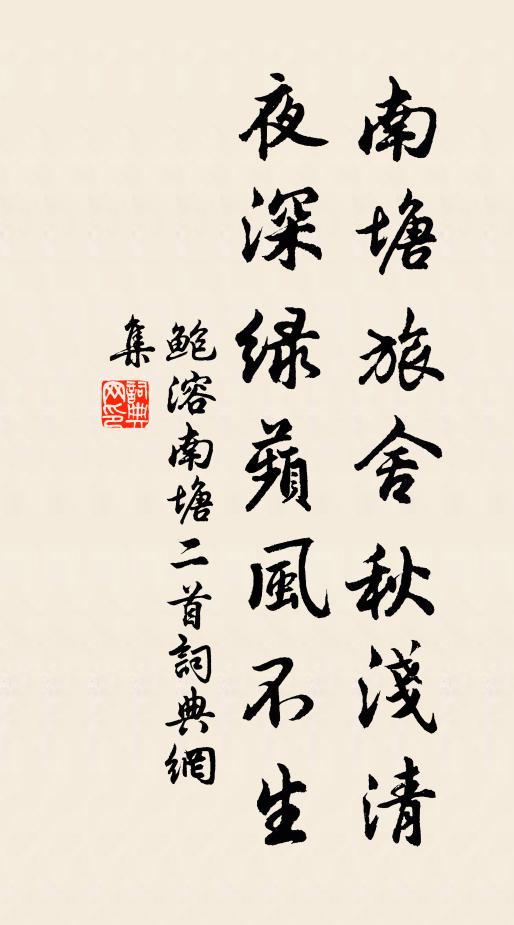 南塘旅舍秋淺清
夜深綠蘋風不生
鮑溶南塘二首詞典網
集
詞典
网印